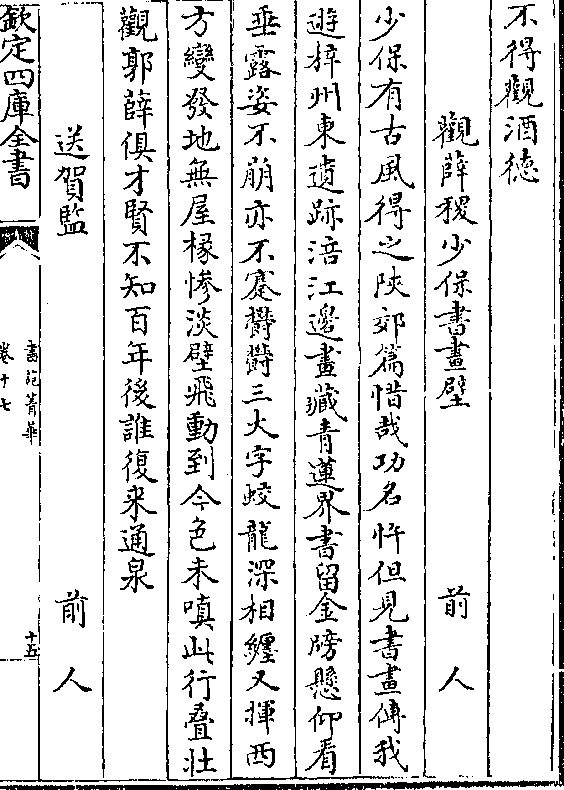 不得觀酒德
觀薛稷少保書畫壁　前人
少保有古風得之陝郊篇惜哉功名忤但見書畫傳我
遊梓州東遺跡涪江邊畫藏青蓮界書留金牓懸仰看
垂露姿不崩亦不騫鬱鬱三大字蛟龍深相纏又揮西
方變發地無屋椽慘淡壁飛動到今色未嗔此行疊壯
觀郭薛俱才賢不知百年後誰復来通泉
送賀監　前人
欽定四庫全書
書苑菁華
卷十七
十五